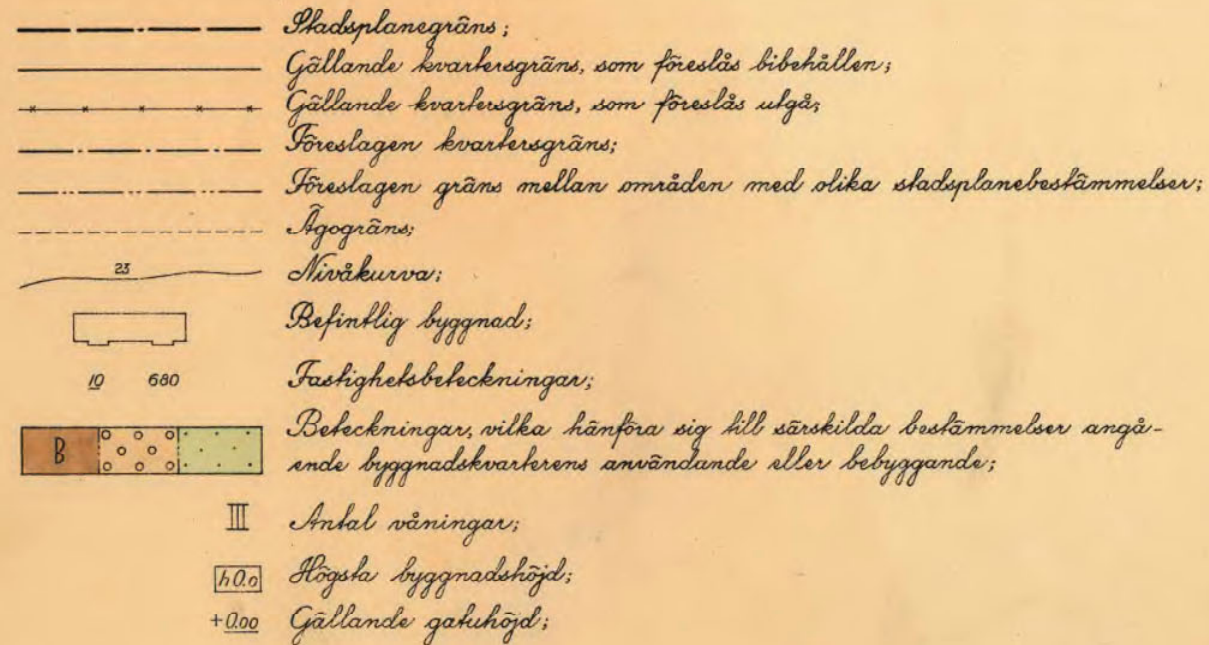 Stadsplanegräns;
Gällande kvartersgräns, som föreslås bibehållen;
Gällande kvartersgräns, som föreslås utgå;
Föreslagen kvartersgräns;
Föreslagen gräns mellan områden med olika stadsplanebestämmelser;
Ägogräns;
23 Nivåkurva;
Befintlig byggnad;
10 680 Fastighetsbeteckningar;
B Beteckningar, vilka hänföra sig till särskilda bestämmelser angå-
ende byggnadskvarterens användande eller bebyggande;
III Antal våningar;
h0.0 Högsta byggnadshöjd;
+0.00 Gällande gatuhöjd;